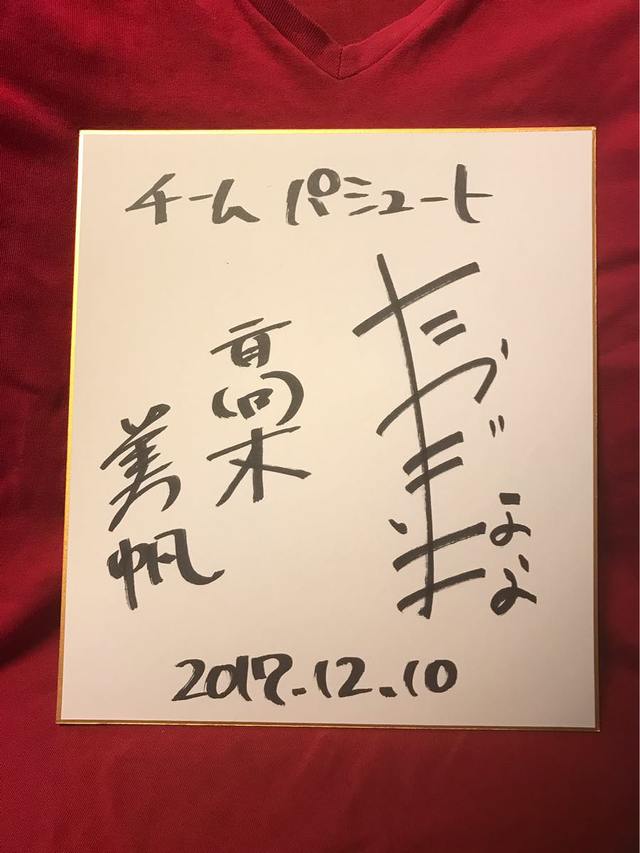 チームパシュート
たかぎなな
高木
美帆
2017.12.10